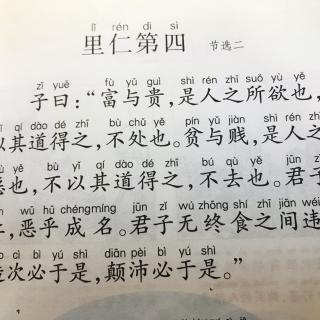 lǐ rén dì sì
里仁第四 节选二
zǐ yuē fù yǔ guì shì rén zhī suǒ yù yě
子曰：“富与贵，是人之所欲也，
qí dào dé zhī bù chǔ yě pín yǔ jiàn shì rén zhī
以其道得之，不处也。贫与贱，是人之
yě bù yǐ qí dào dé zhī bú qù yě jūn zǐ
恶也，不以其道得之，不去也。君子
wū hū chéngmíng jūn zǐ wú zhōng shí zhī jiān wéi
，恶乎成名。君子无终食之间违
cì bì yú shì diān pèi bì yú shì
造次必于是，颠沛必于是。”